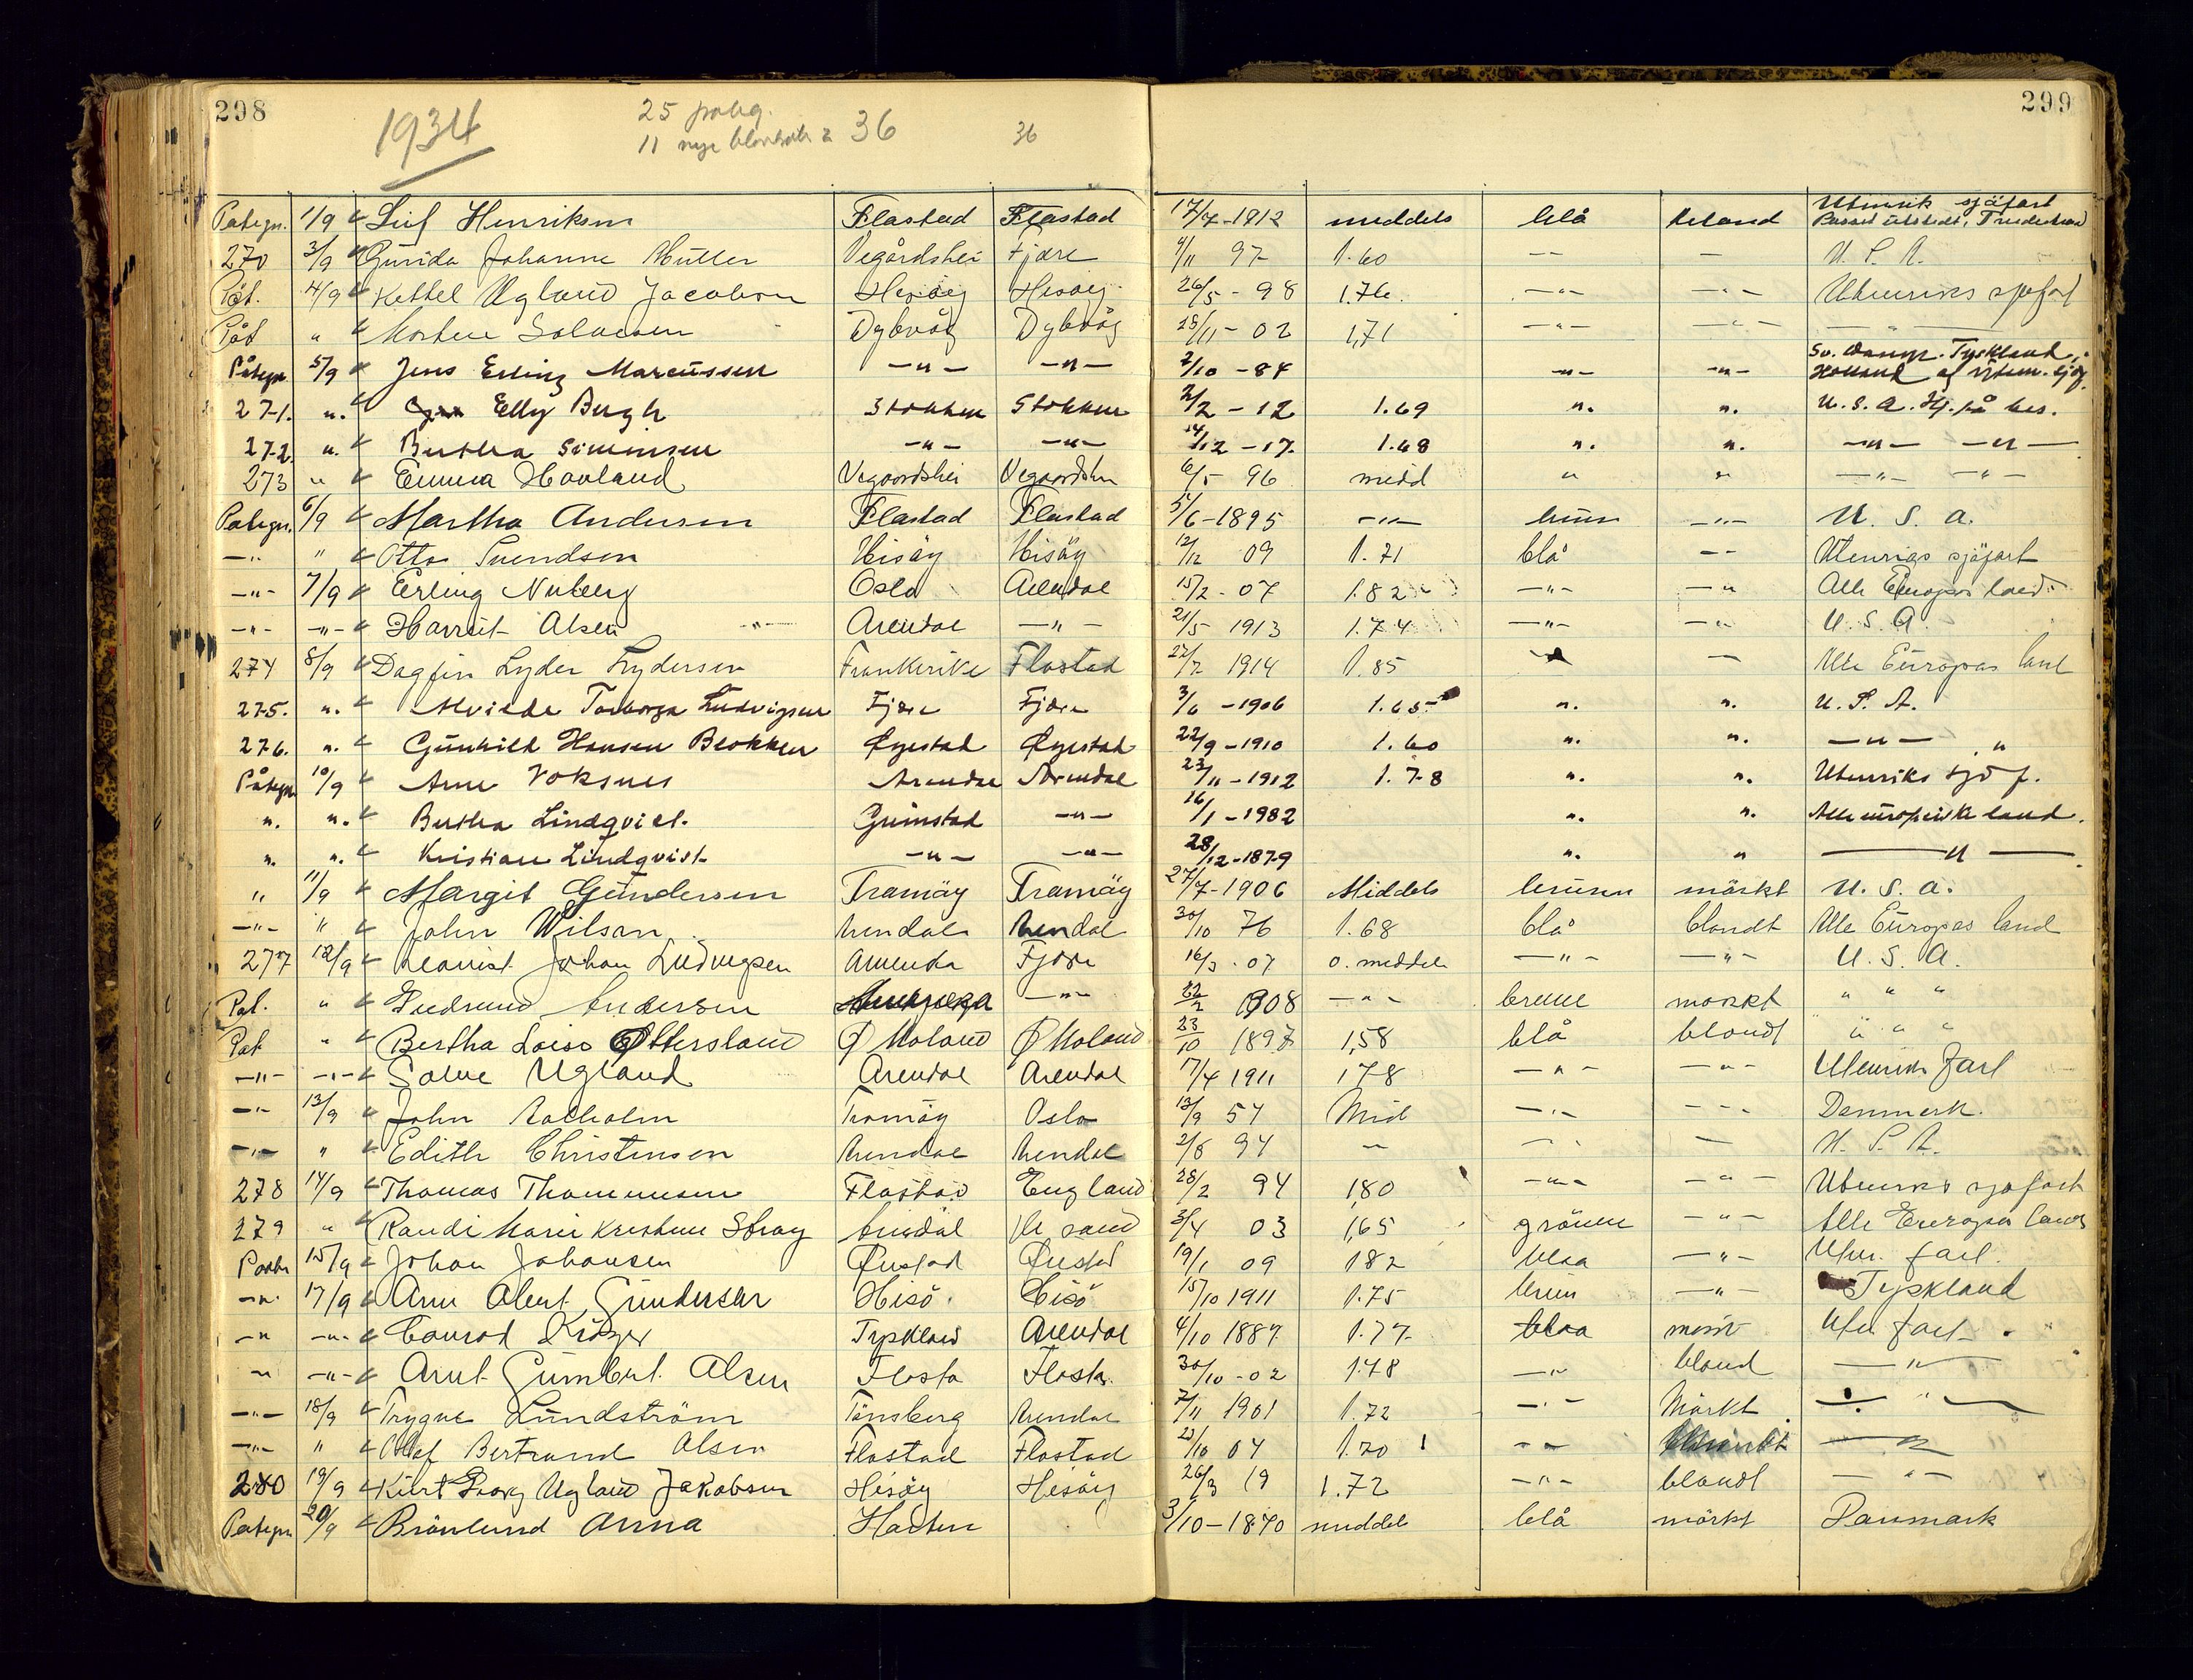 298
299
1934
25 påteg.
11 nye 36
36
Påtegn. 1/9 Leif Henriksen Flastad Flastad 17/7-1912 meddels blå bland Utenrik sjøfart Passet utstedt, Fredrikstad
270 3/9 Gunida Johanne Müller Vegårdshei Fjære 4/11 97 1.60 -- - U.S.A.
Påt. 4/9 Kettel Ugland Jacobsen Hisøy Hisøy 26/5-98 1.76. -"- -"- Utenriks sjøfart
Påt " Morten Salvesen Dybvåg Dybvåg 28/11-02 1,71 -"- -"- -"-
Påtegn 5/9 Jens Erling Marcussen -"- -"- 2/10-84 -"- -"- Sv. Danm. Tyskland, Holland og Utenr. sjøf.
271. ". Elly Bergh Stokken Stokken 2/2-12 1.69 ". ". U.S.A. Hj. på bes.
272. ". Bertha Simonsen -"- -"- 14/12-17. 1.68 ". ". -"- -"-
273 " Emma Hovland Vegaardshei Vegaardshei 6/5 96 midd " " -"- -"-
Påtegn. 6/9 Martha Andersen Flastad Flastad 5/6-1895 -"- brun -"- U.S.a.
-"- " Otto Svendsen Hisøy Hisøy 12/12 09 1.71 blå -- Utenrigs sjøfart
-"- 7/9 Erling Nyberg Oslo Arendal 15/2-07 1.82 -"- -" Alle Europas land
-"- -"- Harriet Olsen -"- Arendal -"- 21/5 1913 1.74 -"- -"- U.S.A.
274 8/9 Dagfin Lyder Lydersen Frankrike Flostad 22/7 1914 1.85 -"- - Alle Europas land
275. ". Alvilde Torborga Ludvigsen Fjære Fjære 3/6-1906 1.65 ". ". U.S.A.
276. ". Gunhild Hansen Blokken Øyestad Øyestad 22/9-1910 1.60 ". ". -"- "
Påtegn 10/9 Arne Voksnes Arendal Arendal 23/11-1912 1.78 ". ". Utenriks sjøf.
". ". Bertha Lindqvist. Grimstad -"- 16/1-1982 ". ". Alle europeiske land.
". ". Kristian Lindqvist -"- -"- 28/12-1879 ". " -"-
" 11/9 Margit Gundersen Tromøy Tromøy 27/7-1906 Middels brunn mørkt U.S.a.
-"- " John Wilson Arendal Arendal 30/10 76 1.68 blå blondt Alle Europas land
277 12/9 Johan Ludvigsen Amerika Fjære 16/3-07 o. meddels -"- -"- U.S.A.
Pat. " Gudrund Andersen Amerika -"- 22/2 1908 -"- brune mørkt " " "
Pat " Bertha Loise Ottersland Ø Moland Ø Moland 23/10 1897 1,58 blå blondt " " "
-"- -"- Salve Ugland Arendal Arendal 17/4 1911 178 -"- -"- Utenriks fart
-"- 13/9 John Tromøy Oslo 13/9 54 Mid -"- --- Denmark.
-"- " Edith Christensen Arendal Arendal 2/8 94 - -"- - U.S.A.
278 14/9 Thomas Thommesen Flostad England 28/2 94 1,80 -"- -"- Utenriks sjøfart
279 " Randi Marie Kristine Stray Arendal Kr sand 3/4 03 1,65 grønne -"- Alle Europas land
Paate 15/9 Johan Johansen Øiestad Øiestad 19/1 09 182 blaa -"- Uten. fart.
-"- 17/9 Arne Albert Gundersen Hisø Hisø 15/10 1911 1.75 brun -"- Tyskland
-" -"- Conrad Krøger Tyskland Arendal 4/10 1887 1.77 blaa mørk Uten fart "
-" -"- Arnt Gumbert Olsen Flosta Flosta. 30/10-02 1.78 -"- blond -"-
-"- 18/9 Trygve Lundstrøm Tønsberg Arendal 7/11 1901 1.72 -"- Mørkt -"-
-"- " Olaf Bertrand Olsen Flostad Flostad 23/10 04 1.70 -"- -"-
280 19/9 Kurt Georg Ugland Jakobsen Hisøy Hisøy 26/3 19 1.72 -"- blondt -"-
Påtegn 20/9 Brønlund Anna Horten 3/10-1870 meddels blå mørkt Danmark